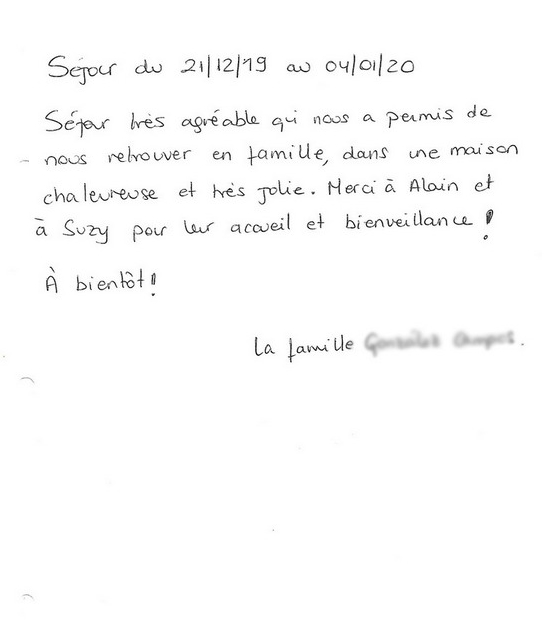 Séjour du 21/12/19 au 04/01/20
Séjour très agréable qui nous a permis de
nous retrouver en famille, dans une maison
chaleureuse et très jolie. Merci à Alain et
à Suzy pour leur accueil et bienveillance !
À bientôt !
La famille